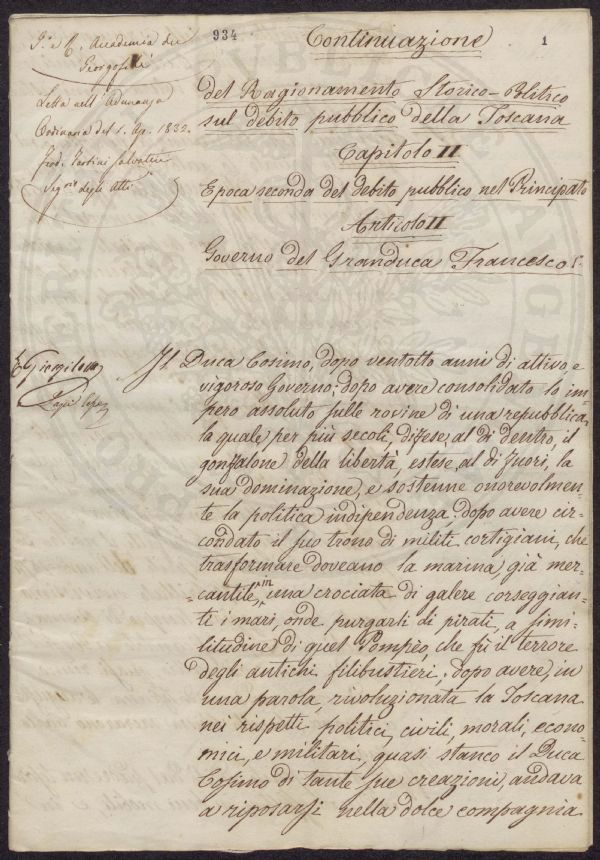 I. e R. Accademia dei
Georgofili
Letta nell'Adunanza
Ordinaria del 1. Ap. 1832.
Segrio degli Atti
934
1
Continuazione
del Ragionamento Storico-Politico
sul debito pubblico della Toscana
Capitolo II
Epoca seconda del debito pubblico nel Principato
Articolo II
Governo del Granduca Francesco I.
Il Duca Cosimo, dopo ventotto anni di attivo, e
vigoroso Governo; dopo avere consolidato lo im-
pero assoluto sulle rovine di una repubblica,
la quale per più secoli, difese, al di dentro, il
gonfalone della libertà, estese, al di fuori, la
sua dominazione, e sostenne onorevolmen-
te la politica indipendenza; dopo avere cir-
condato il suo trono di militi cortigiani, che
trasformare doveano la marina, già mer-
cantile, in una crociata di galere corseggian-
ti i mari, onde purgarli di pirati, a simi-
litudine di quel Pompèo, che fù il terrore
degli antichi filibustieri; dopo avere, in
una parola, rivoluzionata la Toscana
nei rispetti politici, civili, morali, econo-
mici, e militari, quasi stanco il Duca
Cosimo di tante sue creazioni, andava
a riposarsi nella dolce compagnia